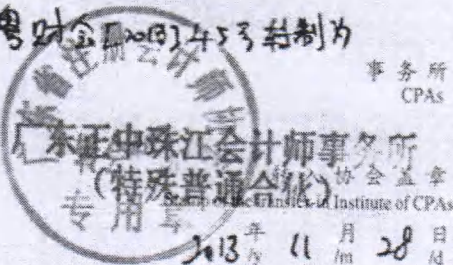 粤财会[2013]45号转制为
事务所
CPAs
广东正中珠江会计师事务所
(特殊普通合伙)
协会盖章
Stamp of the Transfer-in Institute of CPAs
专用章
2013 年 11 月 28 日
/y /m /d